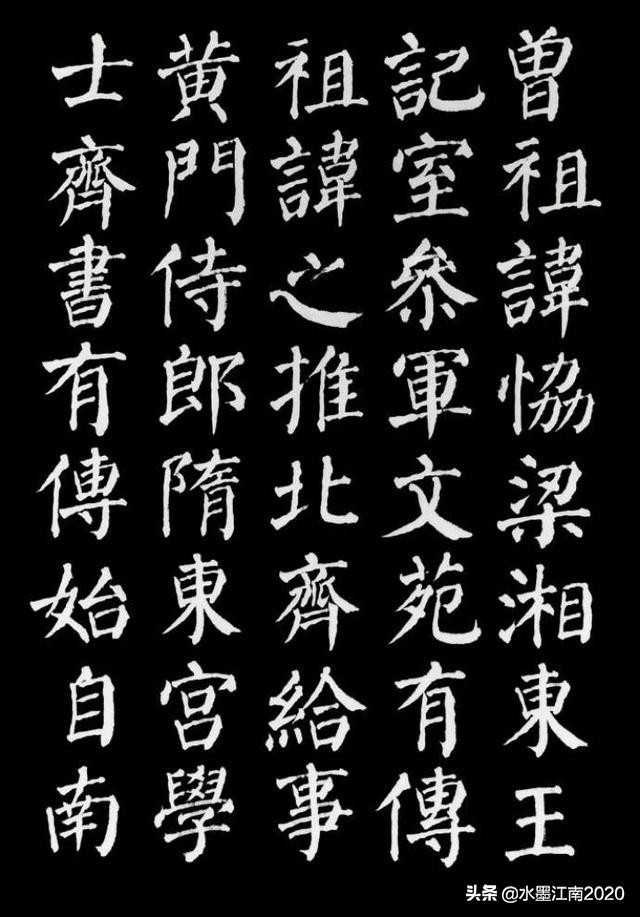 曽祖諱恊梁湘東王
記室叅軍文苑有傳
祖諱之推北齊給事
黄門侍郎隋東宮學
士齊書有傳始自南
头条 @水墨江南2020